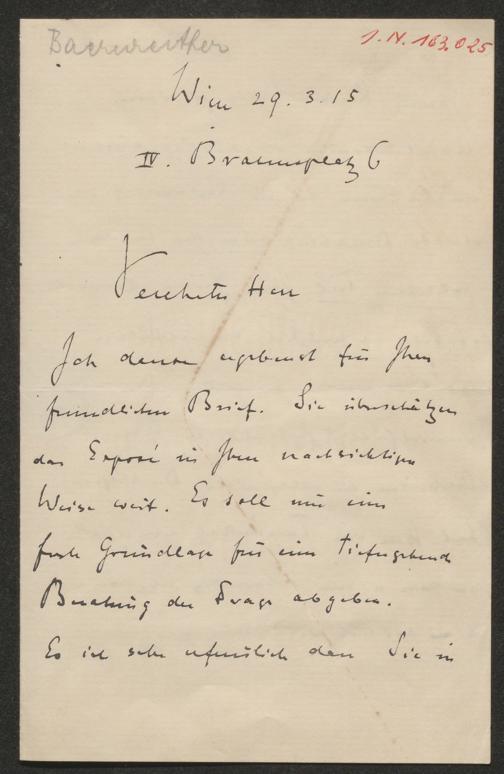 Baernreither
I.N. 163.025
Wien 29. 3. 15
IV. Brahmsplatz 6
Verehrter Herr
Ich danke ergebenst für Ihren
freundlichen Brief. Sie überschätzen
das Exposé in Ihrer nachsichtigen
Weise weit. Es soll nur eine
feste Grundlage für eine tiefergehende
Beratung der Frage abgeben.
Es ist sehr erfreulich dass Sie in